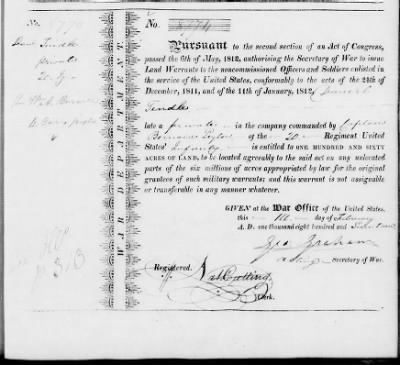 No.
No. 8774
Pursuant to the second section of an Act of Congress,
passed the 6th of May, 1812, authorising the Secretary of War to issue
Land Warrants to the noncommissioned Officers and Soldiers enlisted in
the service of the United States, conformably to the acts of the 24th of
December, 1811, and of the 11th of January, 1812, Samuel
Tindle
late a private in the company commanded by Captain
Taylor of the 20 Regiment United
States' Infantry is entitled to ONE HUNDRED AND SIXTY
ACRES OF LAND, to be located agreeably to the said act on any unlocated
parts of the six millions of acres appropriated by law for the original
grantees of such military warrants; and this warrant is not assignable
or transferable in any manner whatever.
GIVEN at the War Office of the United States,
this day of February
A. D. one thousand eight hundred and
Geo Graham
acting Secretary of War.
Registered.
Nat Cutting
Clerk.
WAR DEPARTMENT.
Tindle
private